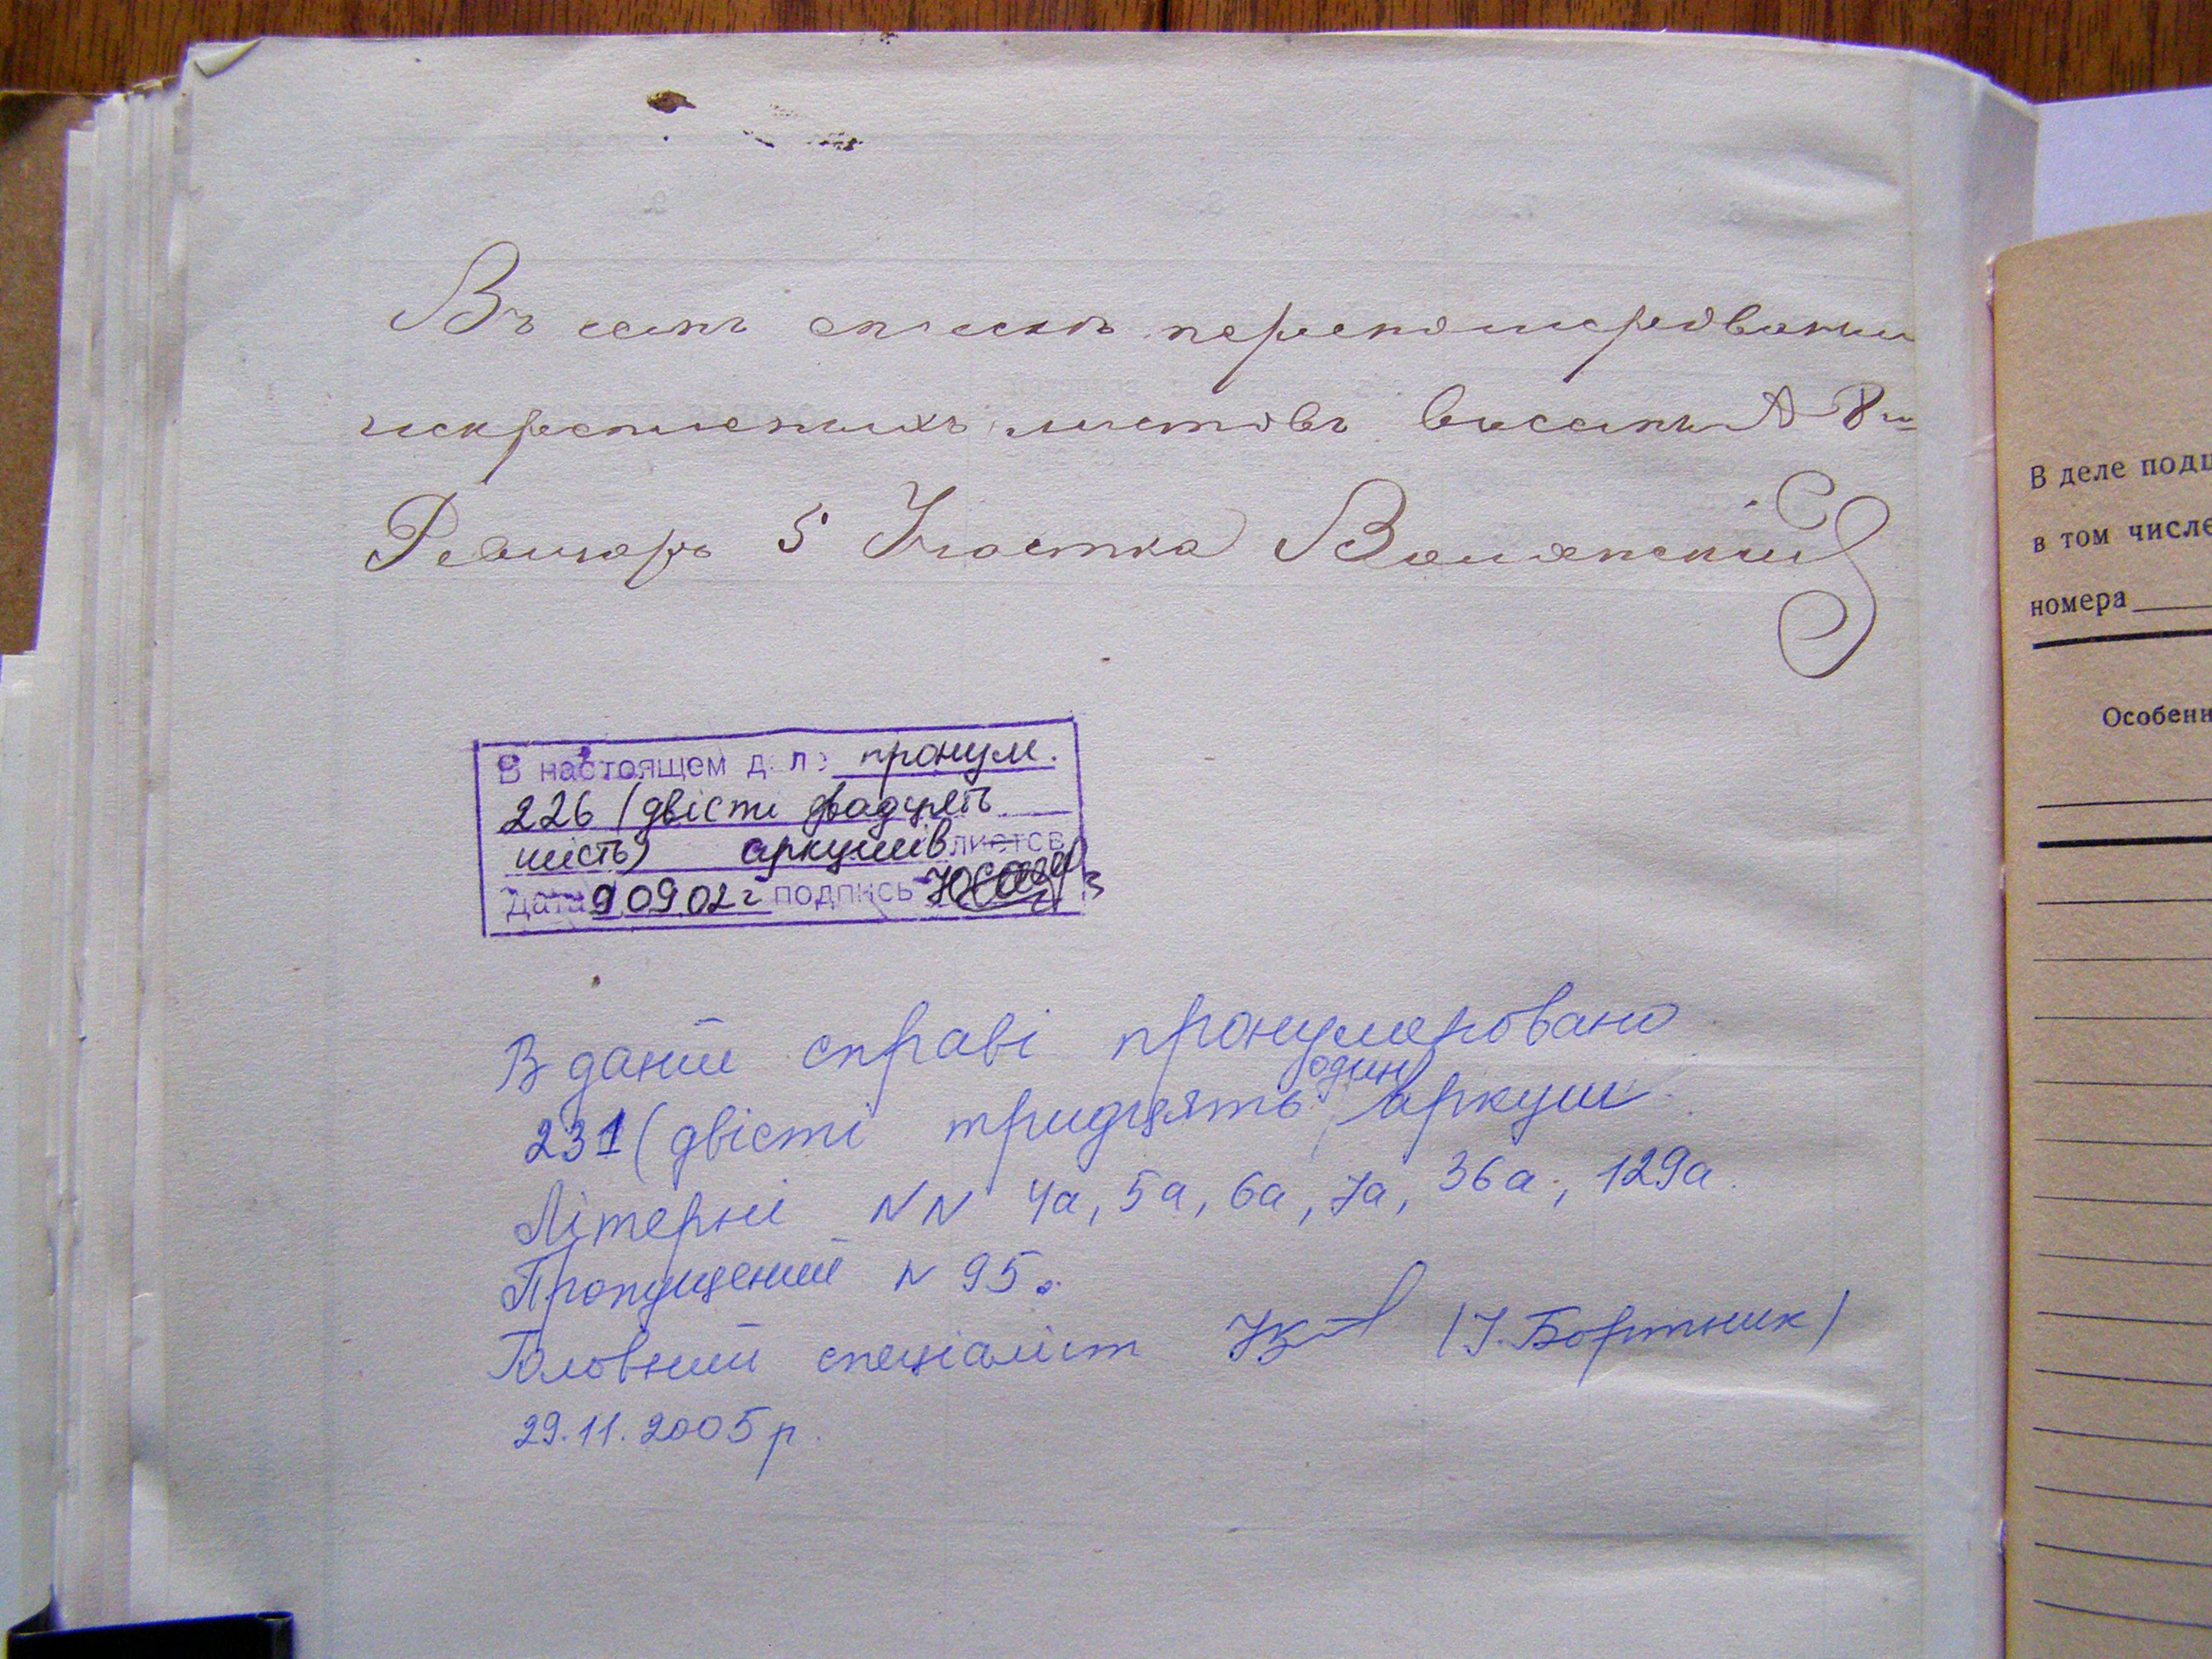 Въ семъ списке перенумеровании
искрепленихъ листовъ восемь А 8
Ревизоръ 5 Участка
В настоящем деле пронум.
226 (двісті двадцять
шість) аркушів листов
Дата 9.09.02 г подпись
В даній справі пронумеровано
231 (двісті тридцять один) аркуш
Літерні NN 4а, 5а, 6а, 7а, 36а, 129а.
Пропущений N 95.
Головний спеціаліст (І. Бортник)
29.11.2005 р.
В деле подш
в том числе
номера
Особенн